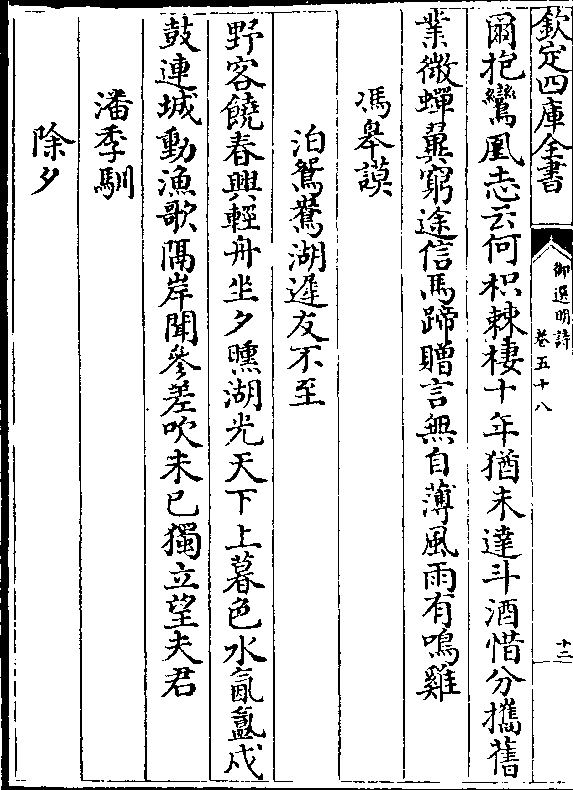 欽定四庫全書
御選明詩
卷五十八
十二
爾抱鸞凰志云何枳棘棲十年猶未達斗酒惜分攜舊
業微蟬翼窮途信馬蹄贈言無自薄風雨有鳴雞
馮皋謨
泊鴛鴦湖遲友不至
野客饒春興輕舟坐夕曛湖光天下上暮色水氤氳戍
鼓連城動漁歌隔岸聞參差吹未已獨立望夫君
潘季馴
除夕